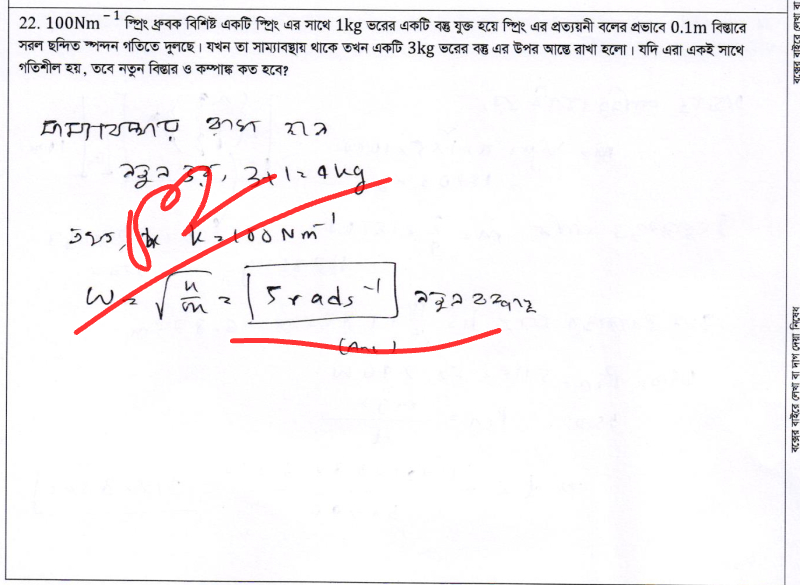 22. 100Nm⁻¹ স্প্রিং ধ্রুবক বিশিষ্ট একটি স্প্রিং এর সাথে 1kg ভরের একটি বস্তু যুক্ত হয়ে স্প্রিং এর প্রত্যয়নী বলের প্রভাবে 0.1m বিস্তারে
সরল ছন্দিত স্পন্দন গতিতে দুলছে। যখন তা সাম্যাবস্থায় থাকে তখন একটি 3kg ভরের বস্তু এর উপর আস্তে রাখা হলো। যদি এরা একই সাথে
গতিশীল হয়, তবে নতুন বিস্তার ও কম্পাঙ্ক কত হবে?
সাম্যাবস্থায় রাখা হলে
নতুন ভর, 3+1=4kg
তখন, k=100Nm⁻¹
ω = √k/m = 5 rads⁻¹ নতুন
(Ans)
বক্সের বাইরে লেখা বা দাগ দেয়া নিষেধ
বক্সের বাইরে লেখা ব